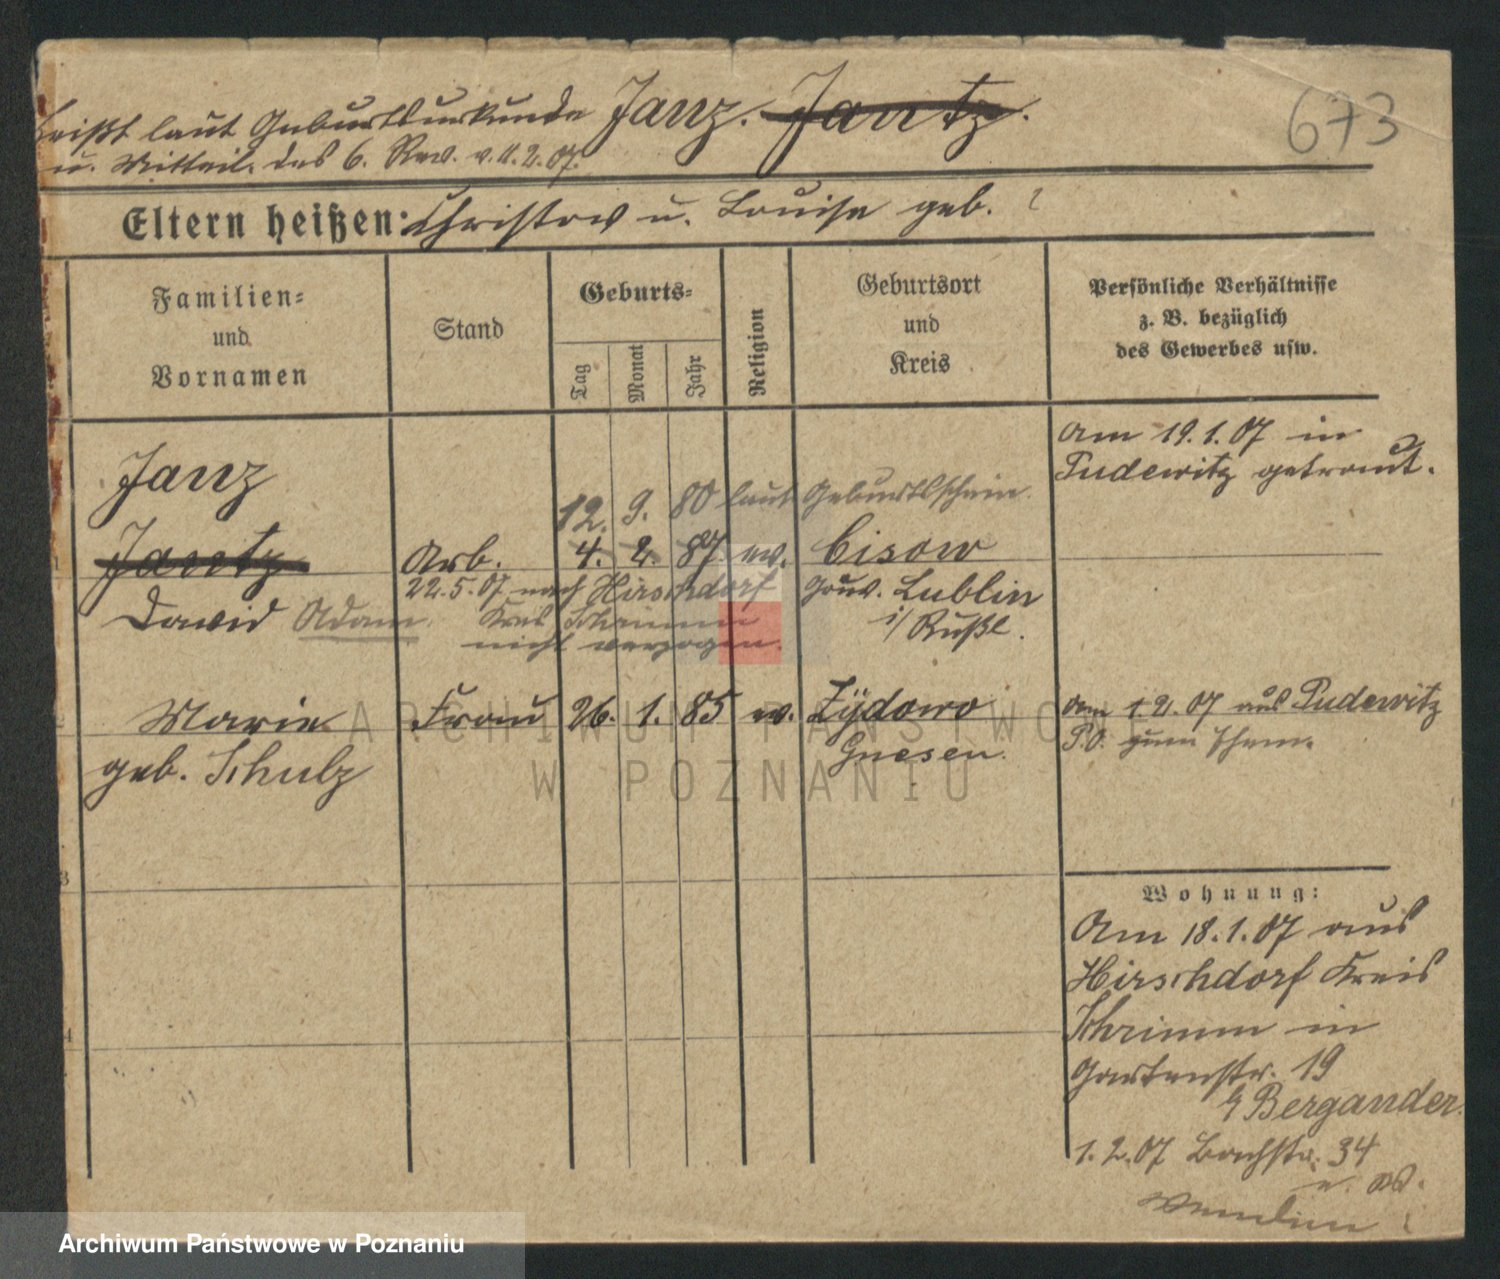 heißt laut Geburtsurkunde Janz. Jantz.
673
u. Mitteil. des 6. Rev. v. 11.2.07.
Eltern heißen: Christow u. Louise geb. ?
Familien-
und
Vornamen
Stand
Geburts-
Tag
Monat
Jahr
Religion
Geburtsort
und
Kreis
Persönliche Verhältnisse
z. B. bezüglich
des Gewerbes usw.
Am 19.1.07 in
Pudewitz getraut.
Janz
12. 9. 80 laut Geburtsschein.
1 Jantz Arb. 4. 2. 87. ev. Cisow
22.5.07 nach Hirschdorf
Gouv. Lublin
Dawid Adam
Kreis Schrimm
i/ Rußl.
nicht verzogen.
2 Marie Frau 26. 1. 85 ev. Zydowo
geb. Schulz
Gnesen.
Am 1.2.07 aus Pudewitz
P.O. zum Ehem.
3
4
Wohnung:
Am 18.1.07 aus
Hirschdorf Kreis
Schrimm in
Gartenstr. 19
b/ Bergander.
1.2.07 Bachstr. 34
ARCHIWUM PAŃSTWOWE
W POZNANIU
Archiwum Państwowe w Poznaniu